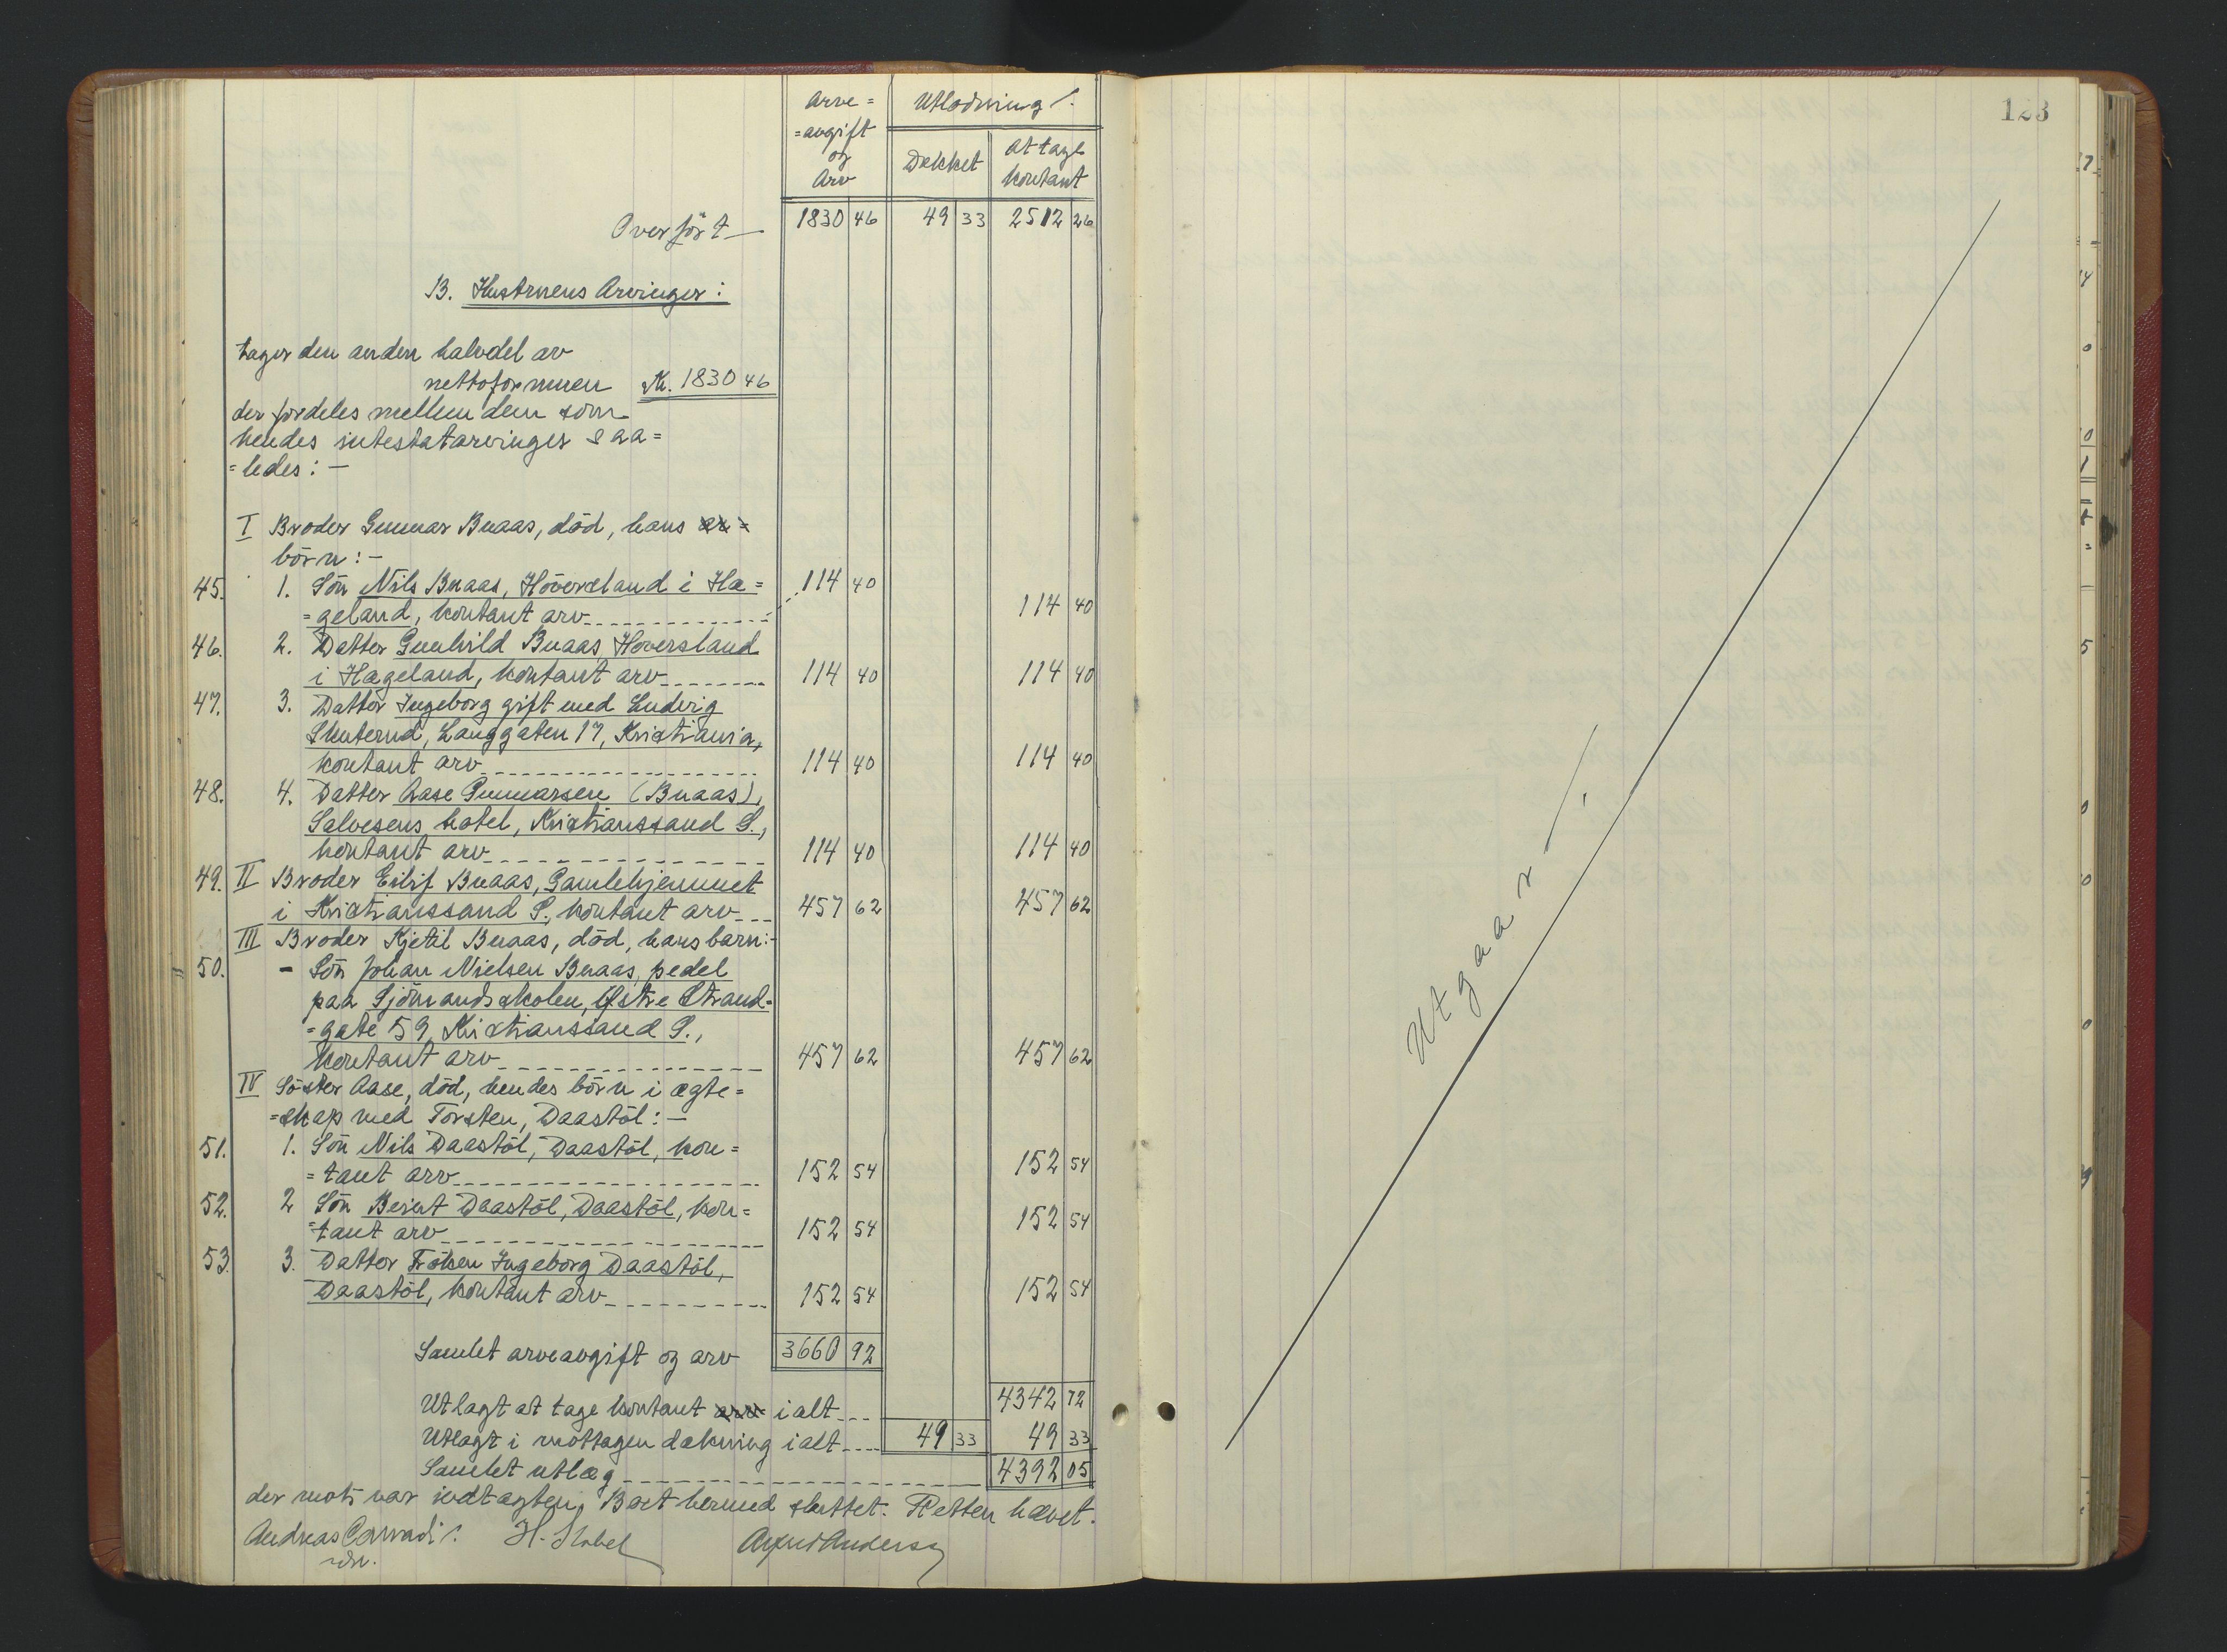 Arve= Utlodning ⁒
=avgift
og Dækket At tage
Arv kontant
Overført— 1830 46 49 33 2512 26
B. Hustruens Arvinger:
tager den anden halvdel av
nettoformuen Kr. 1830 46
der fordeles mellem dem som
hendes intestatarvinger saa=
=ledes: —
I Broder Gunnar Buaas, död, hans
börn: —
45. 1. Sön Nils Buaas, Höversland i Hæ= 114 40
=geland, kontant arv 114 40
46. 2. Datter Gunhild Buaas Høversland
i Hægeland, kontant arv 114 40 114 40
47. 3. Datter Ingeborg gift med Ludvig
Skuterud, Langgaten 17, Kristiania,
kontant arv 114 40 114 40
48. 4. Datter Aase Gunnarsen (Buaas),
Salvesens hotel, Kristianssand S.,
kontant arv 114 40 114 40
49. II Broder Eilif Buaas, Gamlehjemmet
i Kristianssand S., kontant arv 457 62 457 62
III Broder Kjetil Buaas, död, hans barn:-
50. - Sön Johan Nielsen Buaas, pedel
paa Sjömandsskolen, Østre Strand=
=gate 59, Kristianssand S.,
kontant arv 457 62 457 62
IV Söster Aase, död, hendes börn i ægte=
=skap med Torsten, Daastöl: —
51. 1. Sön Nils Daastöl, Daastöl, kon=
=tant arv 152 54 152 54
52. 2 Sön Berent Daastöl, Daastöl, kon=
=tant arv 152 54 152 54
53. 3. Datter Fröken Ingeborg Daastöl,
Daastöl, kontant arv 152 54 152 54
Samlet arveavgift og arv 3660 92
Utlagt at tage kontant ialt 4342 72
Utlagt i mottagen dækning ialt 49 33 49 33
Samlet utlæg 4392 05
der mots var indtægten. Boet hermed sluttet. Retten hævet.
Andreas Conradi ⁒ H. Stabel
123
Utgaar ⁒